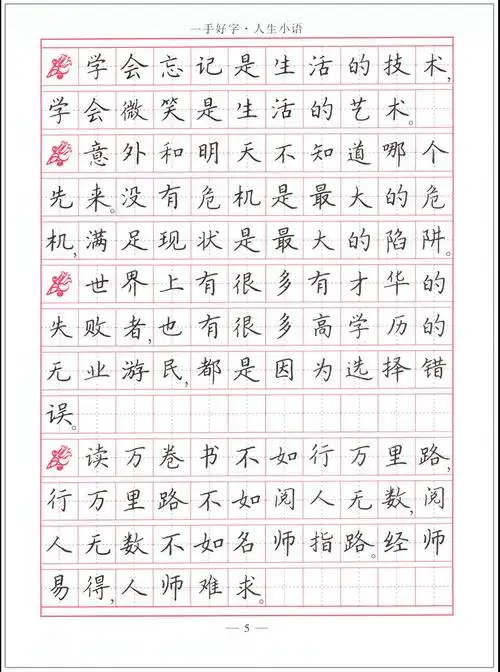 一手好字·人生小语
学会忘记是生活的技术,
学会微笑是生活的艺术。
意外和明天不知道哪个
先来。没有危机是最大的危
机,满足现状是最大的陷阱。
世界上有很多有才华的
失败者,也有很多高学历的
无业游民,都是因为选择错
误。
读万卷书不如行万里路,
行万里路不如阅人无数,阅
人无数不如名师指路。经师
易得,人师难求。
— 5 —